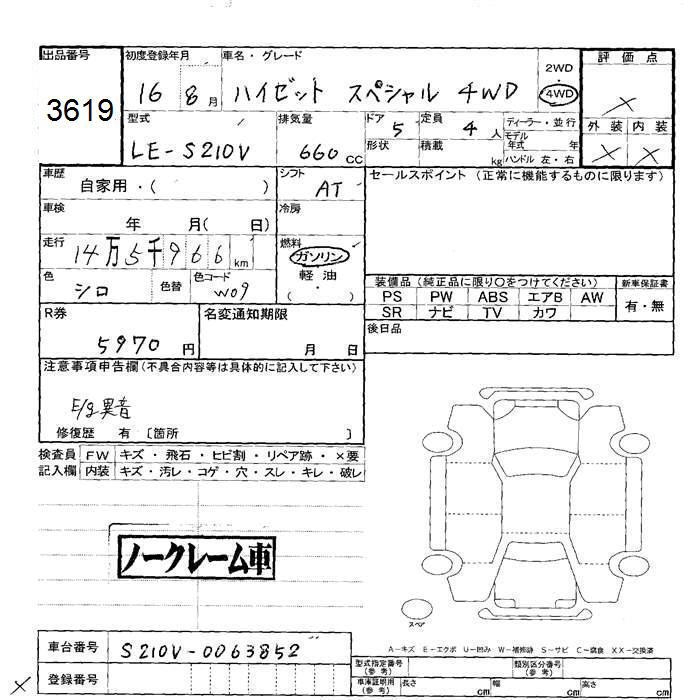 出品番号 初度登録年月 車名・グレード 2WD 評価点
3619 16 8月 ハイゼット スペシャル 4WD 4WD ×
型式 排気量 ドア 5 定員 4人 ディーラー・並行 外装 内装
LE-S210V 660cc 形状 積載 kg モデル年式 年 × ×
ハンドル 左・右
車歴 シフト セールスポイント (正常に機能するものに限ります)
自家用・( ) AT
車検 冷房
年 月( 日)
走行 燃料
14万5千966km ガソリン
色 色替 色コード 軽油
シロ W09 ( ・ )
装備品 (純正品に限り○をつけてください) 新車保証書
PS PW ABS エアB AW 有・無
SR ナビ TV カワ
R券 名変通知期限 後日品
5970円 月 日
注意事項申告欄 (不具合内容等は具体的に記入して下さい)
E/g異音
修復歴 有 [箇所 ]
検査員 FW キズ・飛石・ヒビ割・リペア跡・×要
記入欄 内装 キズ・汚レ・コゲ・穴・スレ・キレ・破レ
ノークレーム車
スペア
A-キズ E-エクボ U-凹み W-補修跡 S-サビ C-腐食 XX-交換済
車台番号 S210V-0063852
型式指定番号 (参考) 類別区分番号 (参考)
登録番号
車庫証明用 (参考) 長さ cm 幅 cm 高さ cm
×